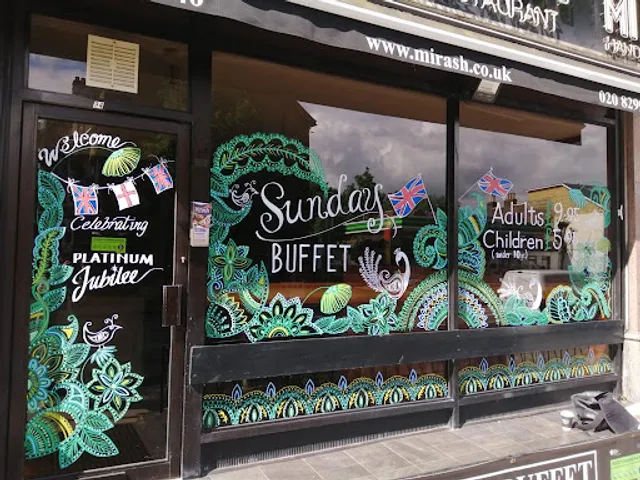 STAURANT
www.mirash.co.uk
020 829
Welcome
Celebrating
PLATINUM
Jubilee
Sunday
BUFFET
Adults 9.95
Children
(under 10yr)
BUFFET